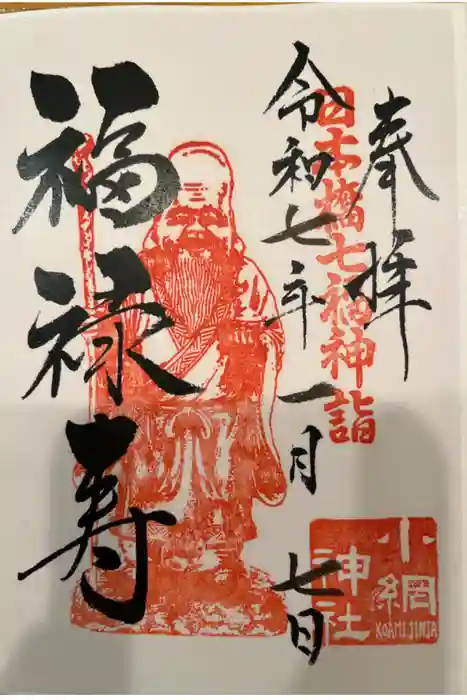 奉拝
日本橋七福神詣
令和七年一月七日
福禄寿
小網
神社
KOAMI JINJA